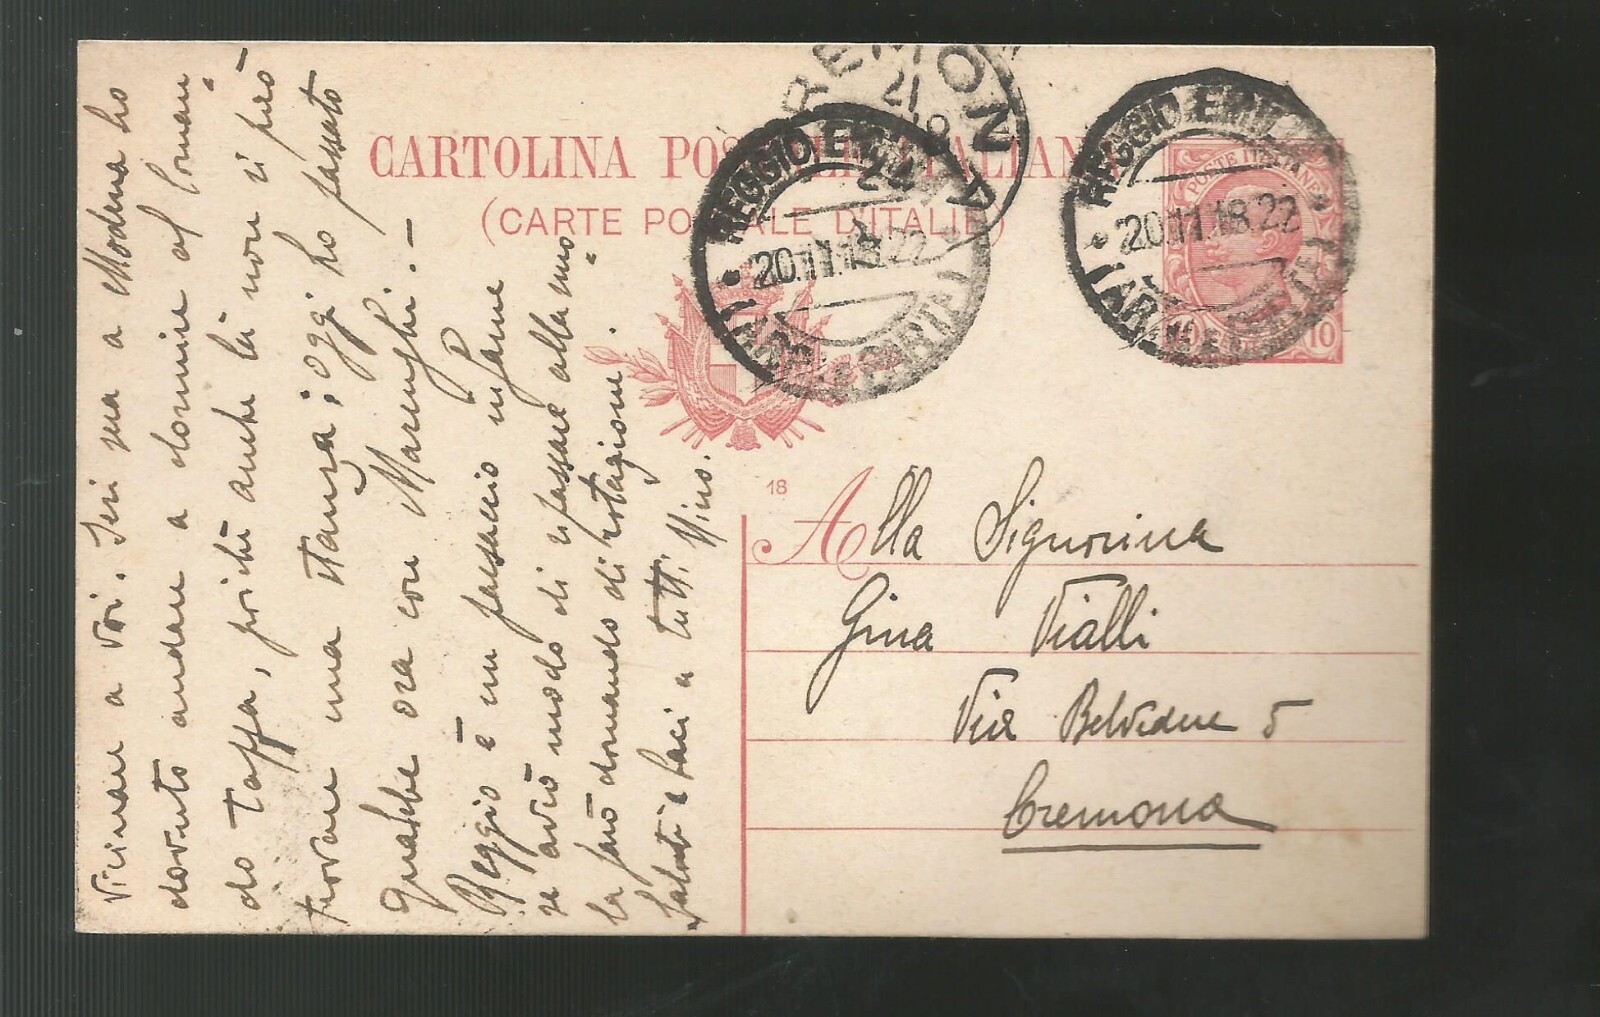 CARTOLINA POSTALE ITALIANA
(CARTE POSTALE D'ITALIE)
CREMONA
21
REGGIO EMILIA
20.11.18.22
(ARRIVI E PARTENZE)
REGGIO EMILIA
20.11.18.22
(ARRIVI E PARTENZE)
POSTE ITALIANE
10 10
18
Alla Signorina
Gina Vialli
Via Belvedere 5
Cremona
vicinare a voi. Ieri sera a Modena ho
dovuto andare a dormire al Coman=
do Tappa, poiché anche là non si può
trovare una stanza; oggi ho passato
qualche ora con Marenghi. –
Reggio è un paesaccio infame
se avrò modo di ripassare alla mia=
la farò domando di rotazione.
Saluti e baci a tutti Nino.